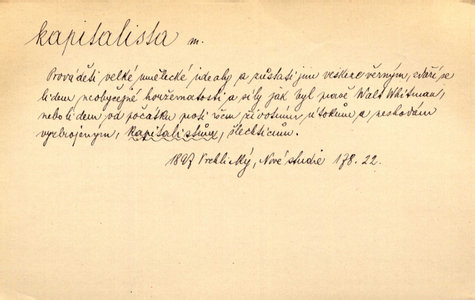 kapitalista m.
Prováděti velké umělecké ideály a zůstati jim veskrze věrným, zdaří se
lidem neobyčejné houževnatosti a síly jak byl právě Walt Whitman,
nebo lidem od počátku proti všem životním útokům a nehodám
vyzbrojeným, kapitalistům, šlechticům.
1897 Vrchlický, Nové studie 178. 22.